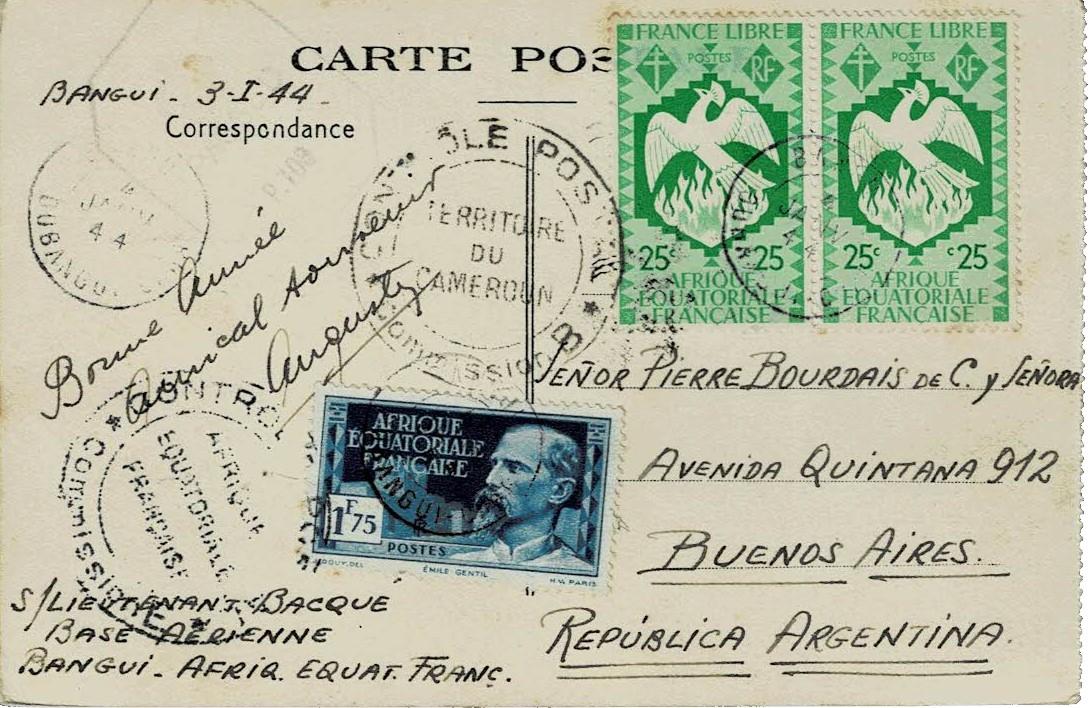 CARTE POS
BANGUI - 3-I-44
Correspondance
FRANCE LIBRE
POSTES
RF
25c c25
AFRIQUE
ÉQUATORIALE
FRANÇAISE
FRANCE LIBRE
POSTES
RF
25c c25
AFRIQUE
ÉQUATORIALE
FRANÇAISE
4
JANV
44
OUBANGUI
CONTROLE POSTAL
TERRITOIRE
DU
CAMEROUN
COMMISSION B
Bonne Année
Amical souvenir
Auguste
CONTROL
COMMISSION
AFRIQUE
EQUATORIALE
FRANÇAISE
AFRIQUE
ÉQUATORIALE
FRANÇAISE
BANGUI
1F75
POSTES
DOUY. DEL
ÉMILE GENTIL
H.V. PARIS
SEÑOR PIERRE BOURDAIS DE C. y SEÑORA
AVENIDA QUINTANA 912
BUENOS AIRES.
REPÚBLICA ARGENTINA.
S/LIEUTENANT BACQUE
BASE AÉRIENNE
BANGUI. AFRIQ. EQUAT. FRANÇ.